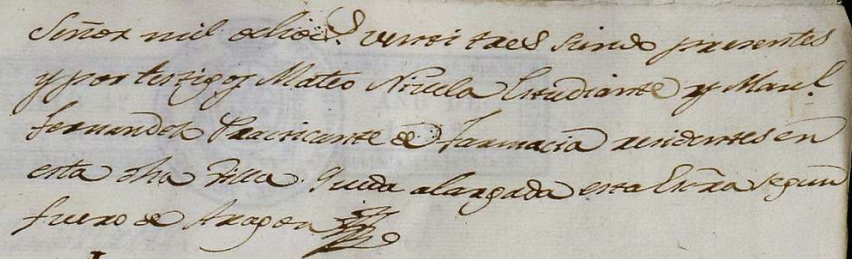 Señor mil ochoc.s veinti tres siendo presentes
y por testigos Mateo Niñela Estudiante y Man.l
Fernandez Practicante de Farmacia residentes en
esta dha Villa. Queda alargada esta Es.ra segun
fuero de Aragon